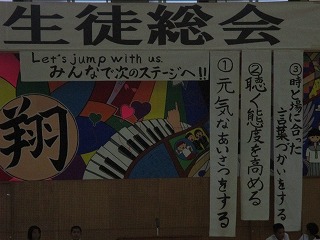 生徒総会
Let's jump with us.
みんなで次のステージへ!!
翔
①元気なあいさつをする
②聴く態度を高める
③時と場に合った
言葉づかいをする